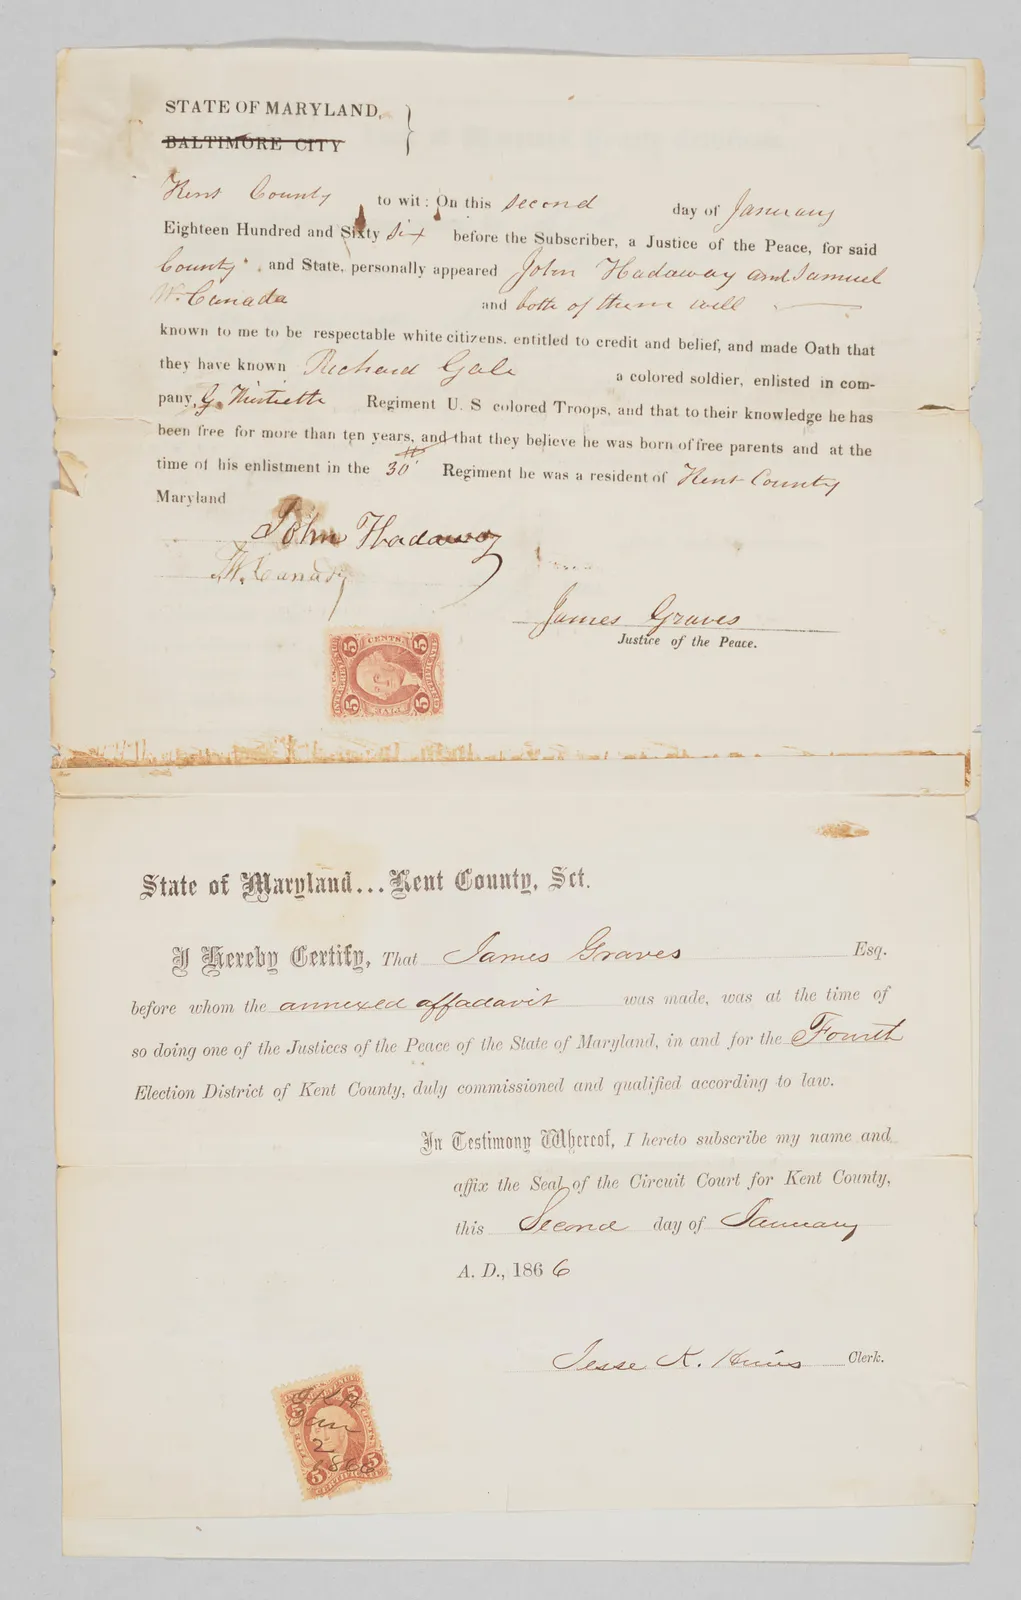 STATE OF MARYLAND,
BALTIMORE CITY
Kent County to wit: On this second day of January
Eighteen Hundred and Sixty six before the Subscriber, a Justice of the Peace, for said
County, and State, personally appeared John Hadaway and Samuel
W. Canada and both of them well
known to me to be respectable white citizens. entitled to credit and belief, and made Oath that
they have known Richard Gale a colored soldier, enlisted in com-
pany, G. Thirtieth Regiment U. S colored Troops, and that to their knowledge he has
been free for more than ten years, and that they believe he was born of free parents and at the
time of his enlistment in the 30th Regiment he was a resident of Kent County
Maryland
John Hadaway
S.W. Canady
James Graves
Justice of the Peace.
5 CENTS. 5
INTER. REV. CERTIFICATE
5 5
State of Maryland... Kent County, Sct.
I Hereby Certify, That James Graves Esq.
before whom the annexed affadavit was made, was at the time of
so doing one of the Justices of the Peace of the State of Maryland, in and for the Fourth
Election District of Kent County, duly commissioned and qualified according to law.
In Testimony Whereof, I hereto subscribe my name and
affix the Seal of the Circuit Court for Kent County,
this Second day of January
A. D., 1866
Jesse K. Hines Clerk.
5 5
CENTS.
J K H
Jan
2
1866
5 5
CERTIFICATE